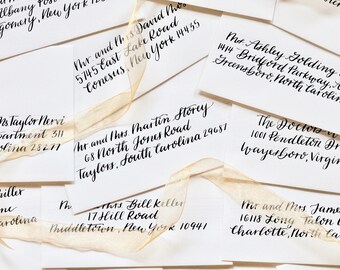 Albany Post
gomery, New York 10
Mr. and Mrs. David Mos
5745 East Lake Road
Conesus, New York 14435
Mrs. Ashley Golding
1414 Bridford Parkway, A
Greensboro, North Carolina
Ms Taylor Nervi
partment 311
olina 28277
Mr. and Mrs. Martin Storey
68 North Jones Road
Taylors, South Carolina 29687
The Doctors
1001 Pendleton Dr
Waynesboro, Virgin
hiller
ne
arolina
Mrs. Bill Keller
17 Hill Road
Middletown, New York 10941
Mr. and Mrs. James
16118 Long Talon
Charlotte, North Ca